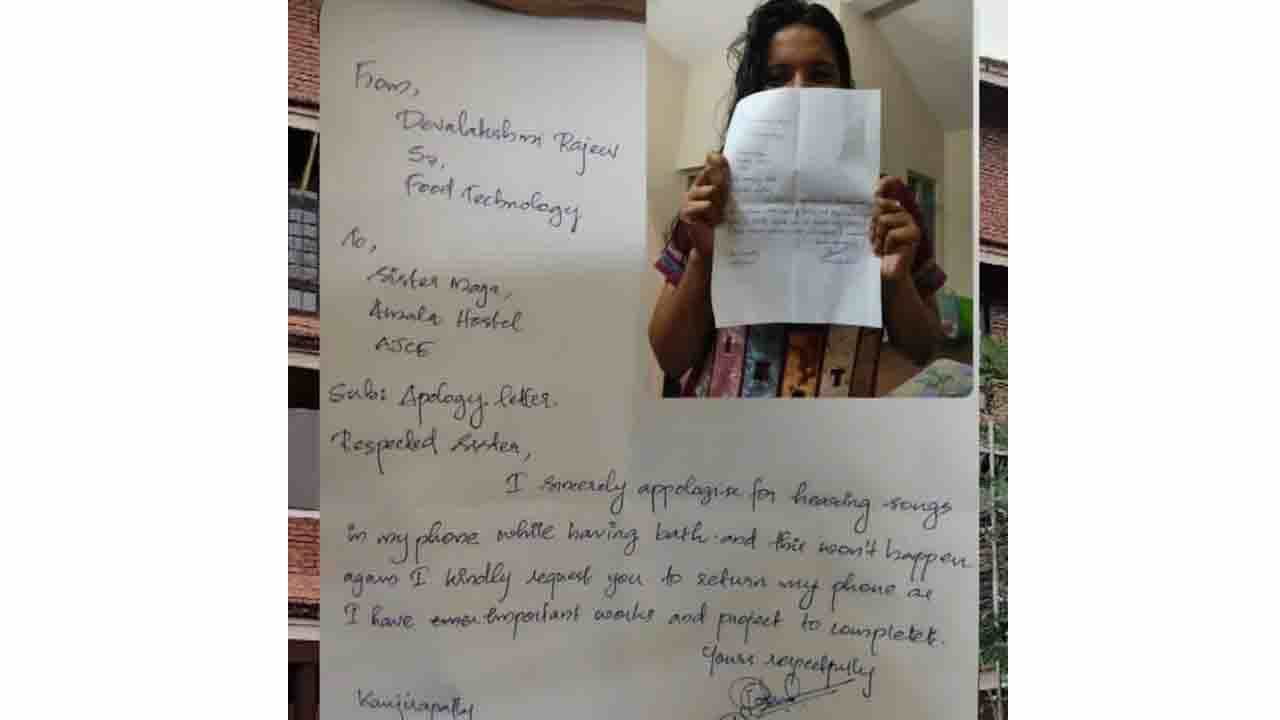 From,
Devalakshmi Rajeev
S7,
Food Technology
To,
Sister Maya,
Amala Hostel
AJCE
Sub: Apology letter.
Respected Sister,
I sincerely appologise for hearing songs
in my phone while having bath. and this won't happen
again I kindly request you to return my phone as
I have important works and project to complete.
Yours respectfully
Kanjirapally